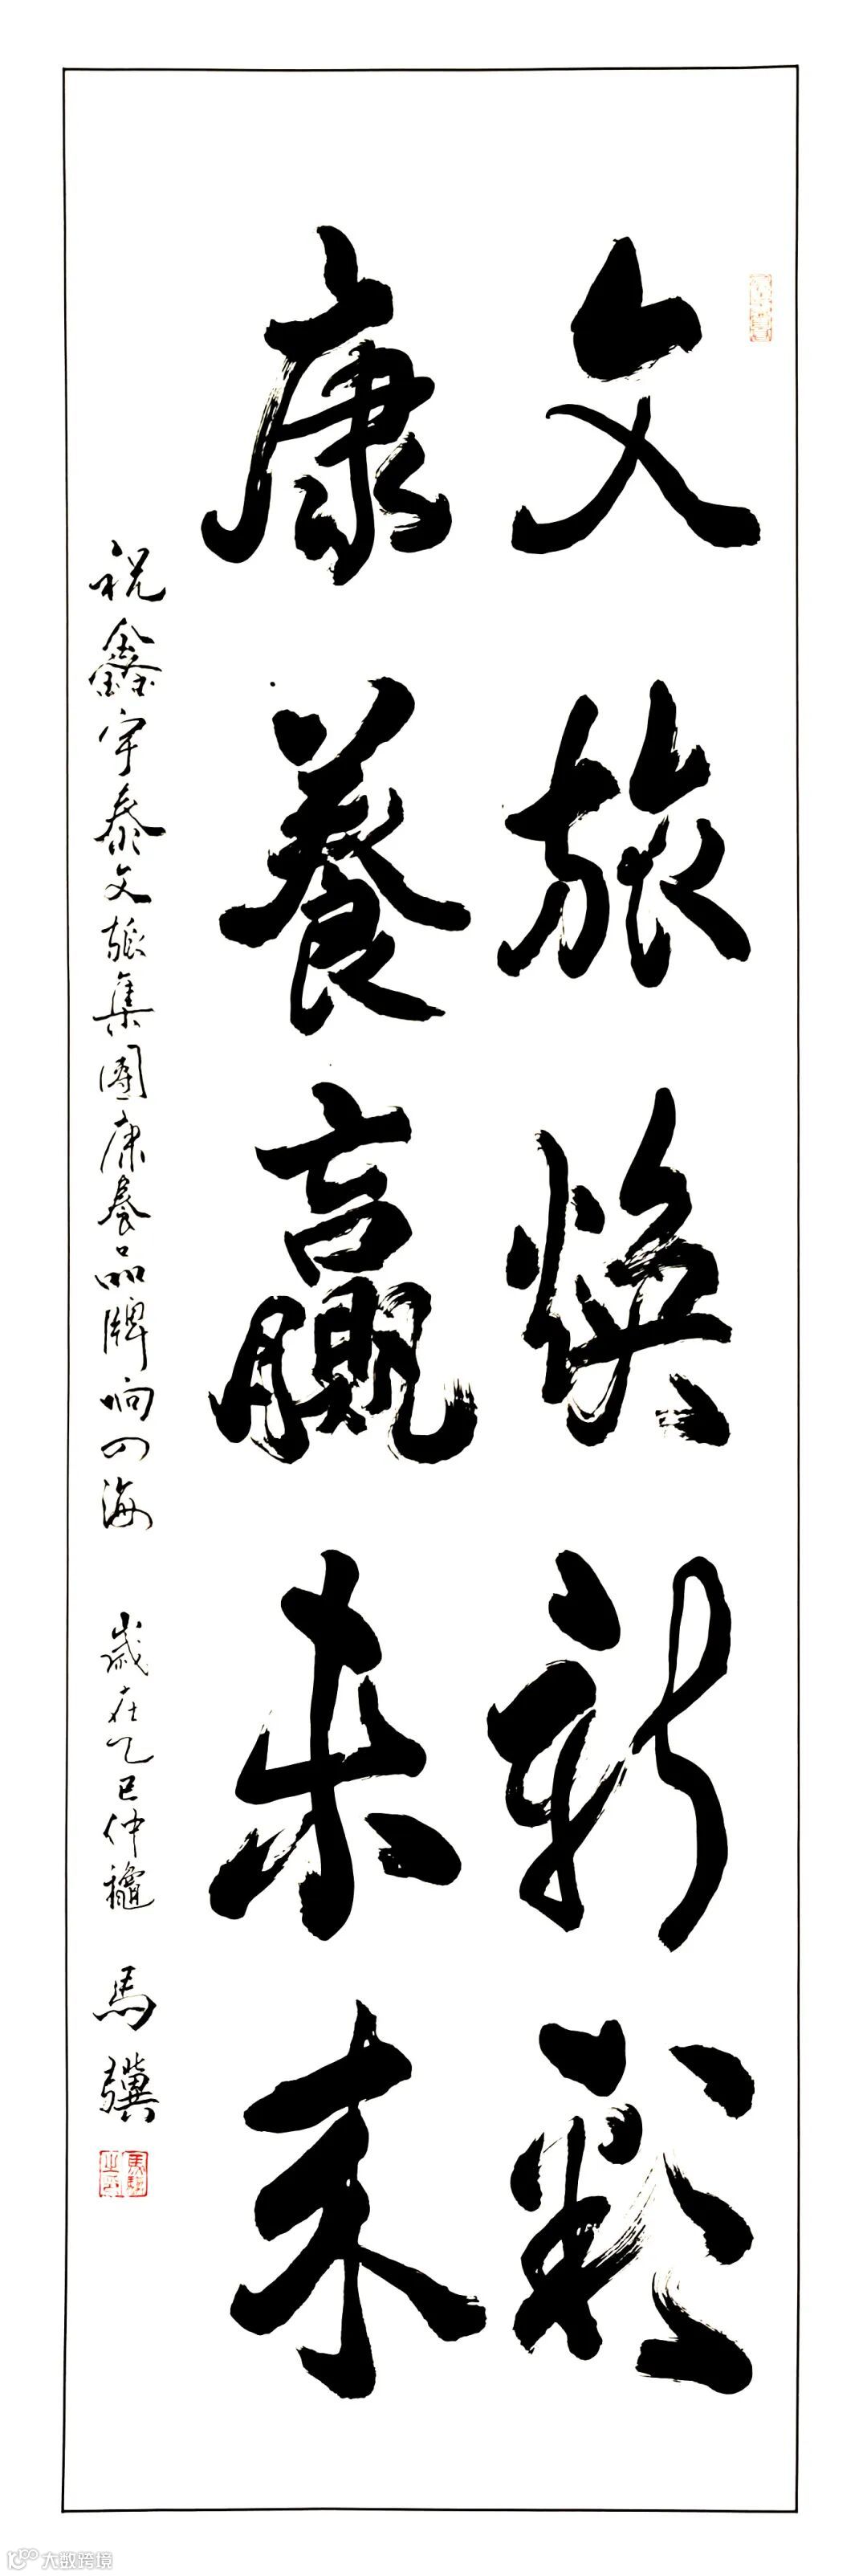 文旅焕新彩
康養贏未来
祝鑫宇泰文旅集團康養品牌响四海 歲在乙巳仲穐 馬驥
大数跨境